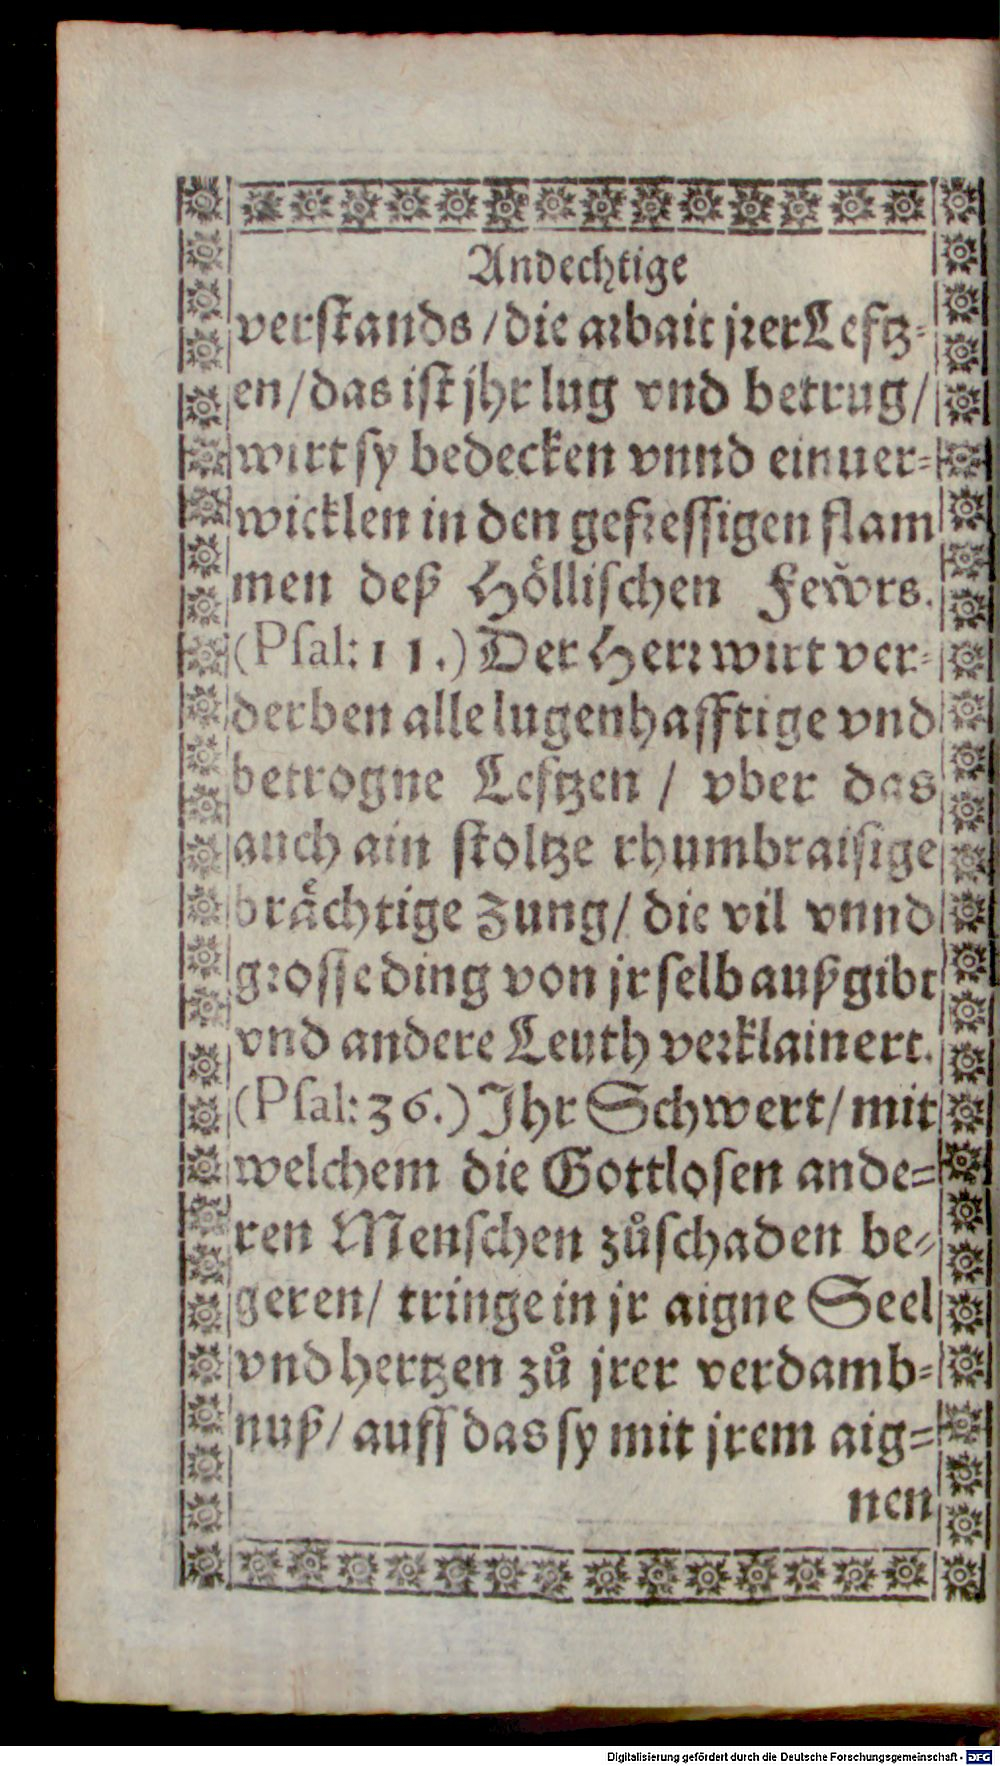 Andechtige
verstands / die arbait jrer Lefftz-
en / das ist jhr lug vnd betrug /
wirt sy bedecken vnnd einuer-
wicklen in den gefressigen flam
men deß Höllischen Fewͤrs.
(Psal: 11.) Der Herr wirt ver-
derben alle lugenhafftige vnd
betrogne Lefftzen / vber das
auch ain stoltze rhumbraisige
brächtige Zung / die vil vnnd
grosse ding von jr selb auß gibt
vnd andere Leuth verklainert.
(Psal: 36.) Ihr Schwert / mit
welchem die Gottlosen ande-
ren Menschen zů schaden be-
geren / tringe in jr aigne Seel
vnd hertzen zů jrer verdamb-
nuß / auff das sy mit jrem aig-
nen
Digitalisierung gefördert durch die Deutsche Forschungsgemeinschaft - DFG